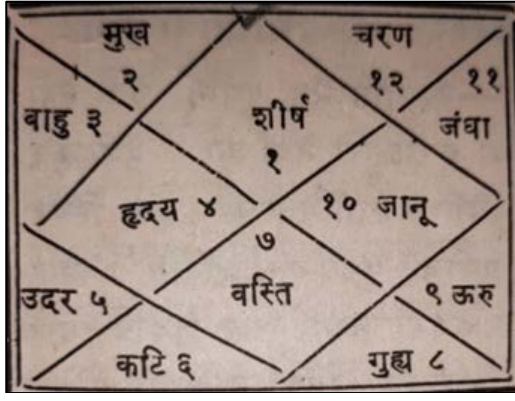 मुख
२
चरण
१२
११
बाहु ३
शीर्ष
१
जंघा
हृदय ४
१० जानू
७
वस्ति
उदर ५
९ ऊरु
कटि ६
गुह्य ८